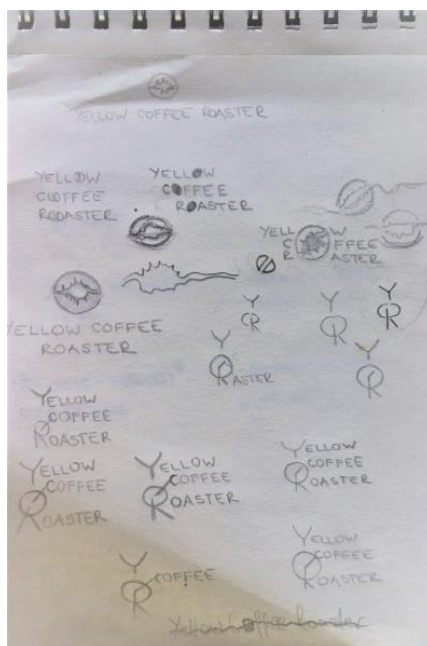 YELLOW COFFEE ROASTER
YELLOW
COFFEE
ROASTER
YELLOW
COFFEE
ROASTER
YELL W
C FFEE
R ASTER
YELLOW COFFEE
ROASTER
Y
CR
Y
R
Y
R
Y
RASTER
Y
R
YELLOW
COFFEE
ROASTER
YELLOW
COFFEE
ROASTER
YELLOW
COFFEE
ROASTER
YELLOW
COFFEE
ROASTER
Y COFFEE
R
YELLOW
COFFEE
ROASTER
Yellow Coffee Roaster